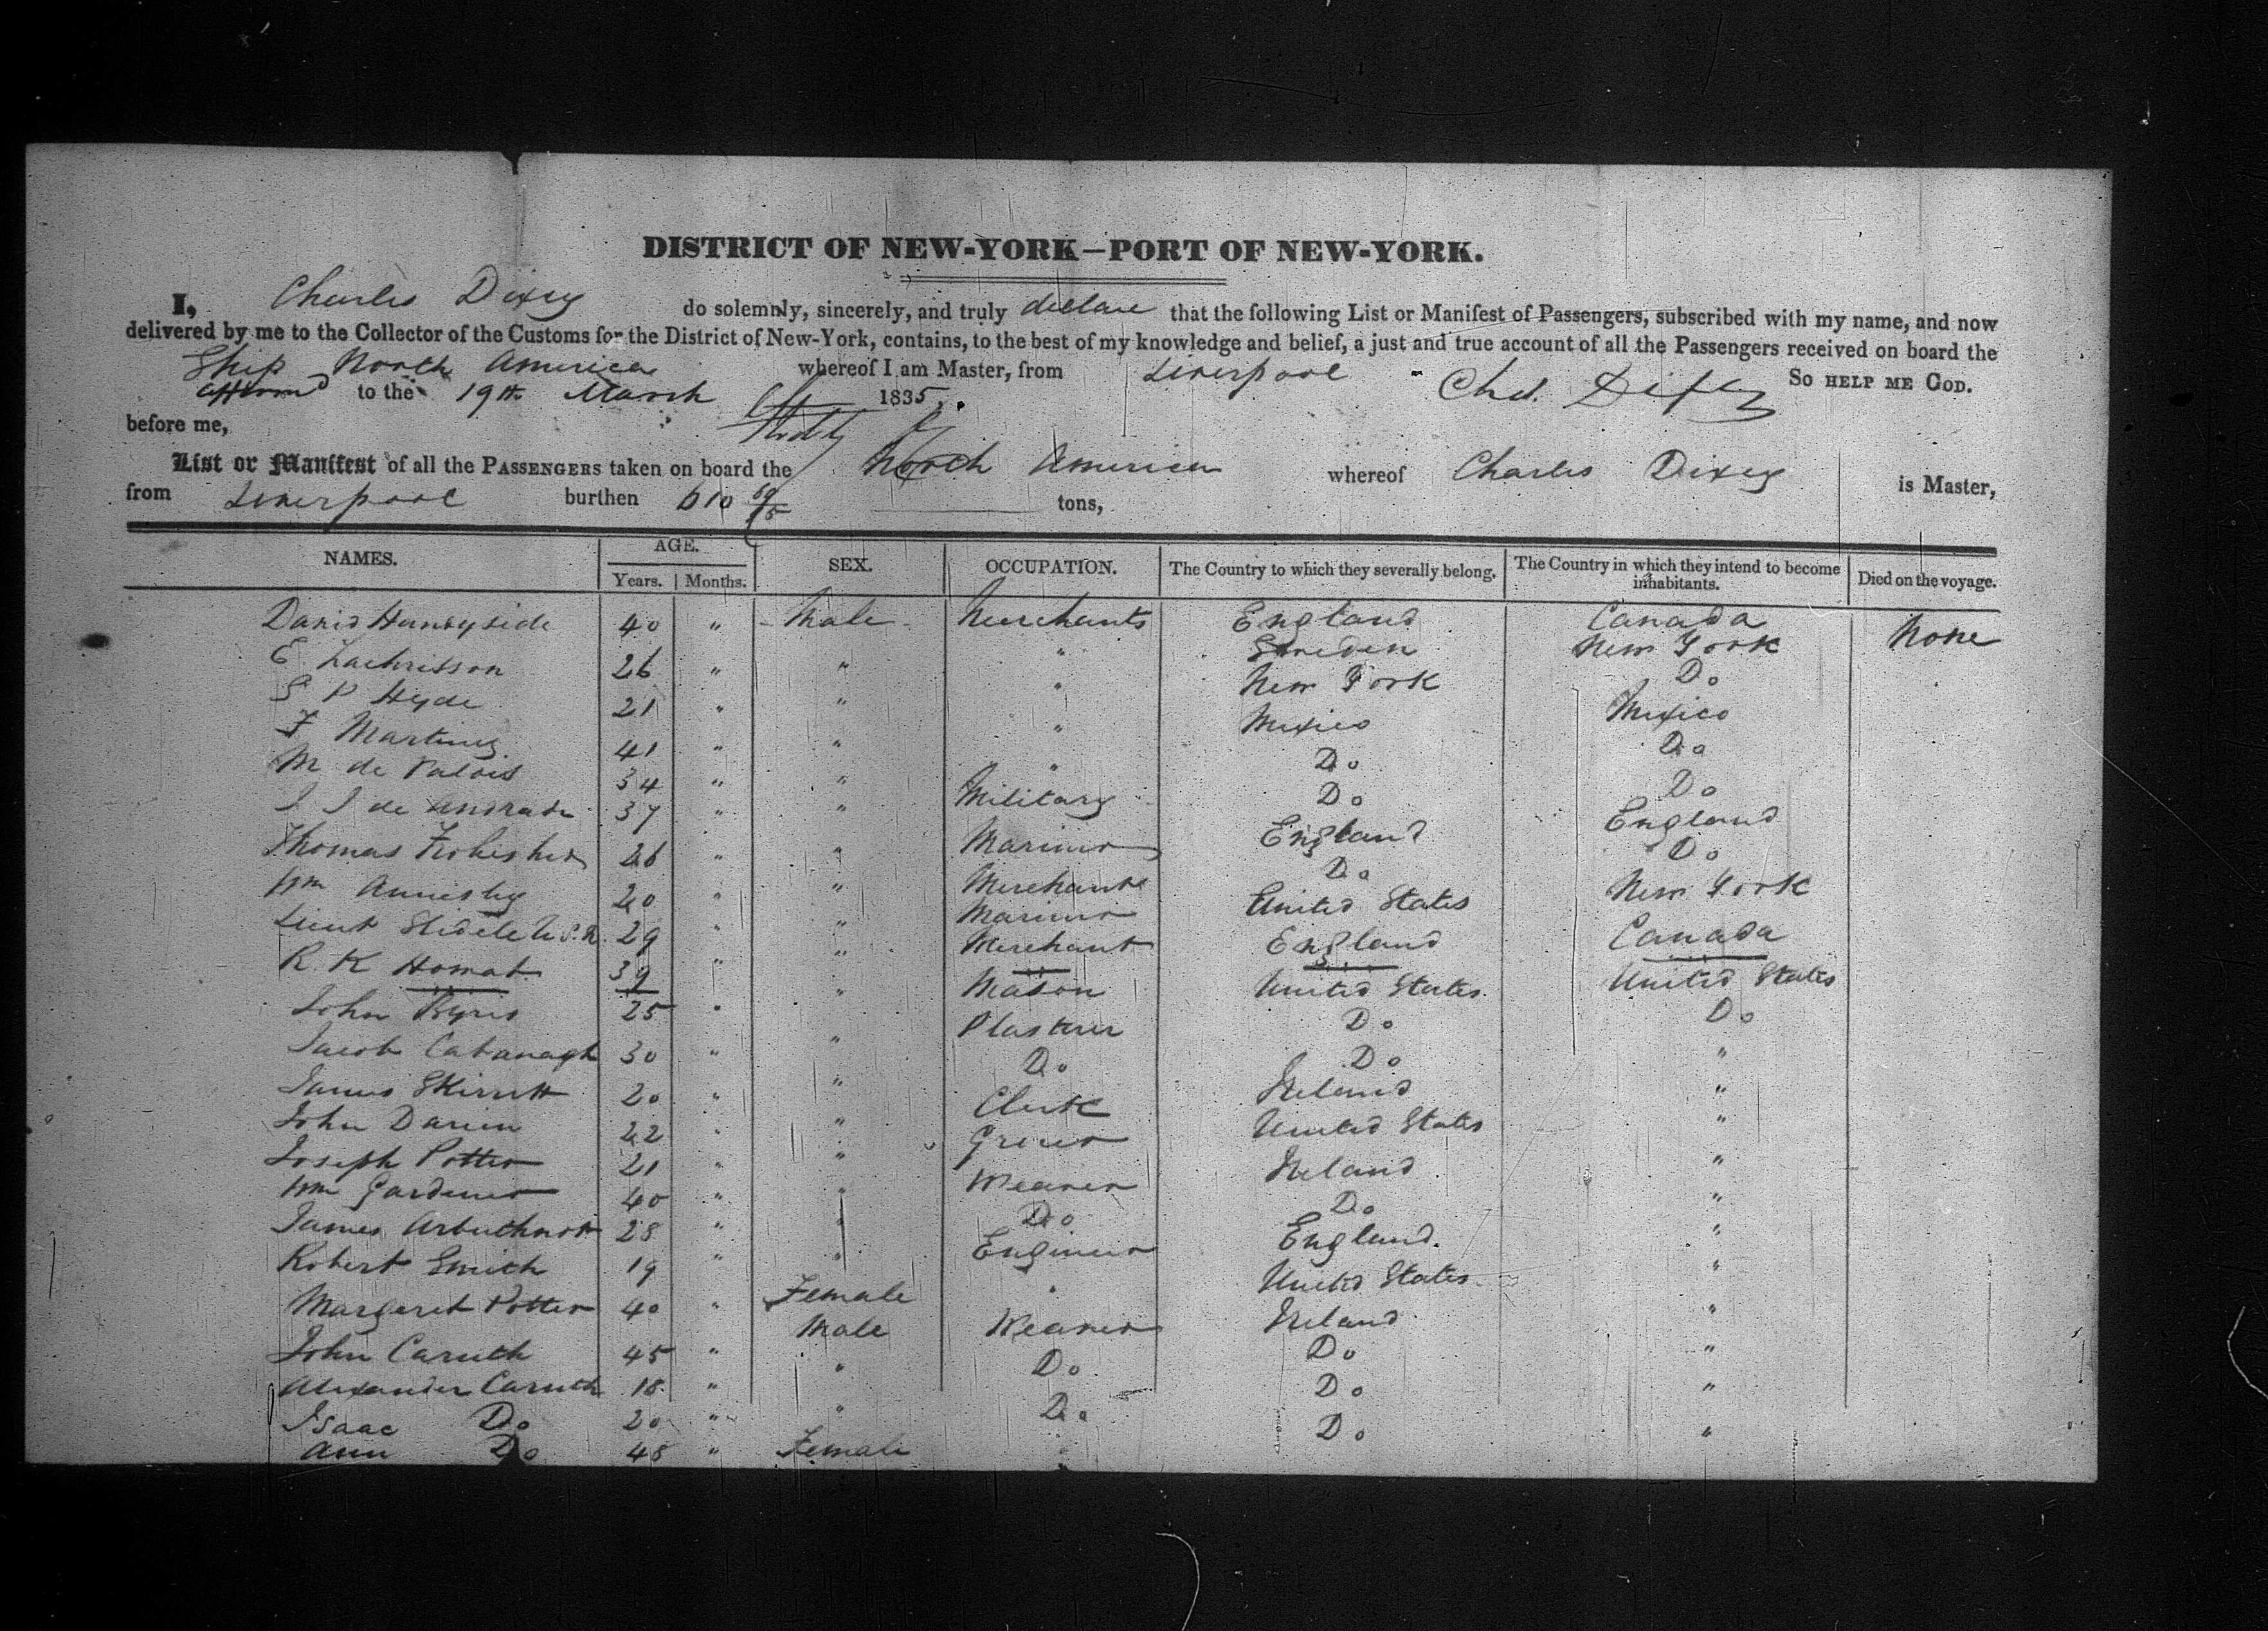 DISTRICT OF NEW-YORK—PORT OF NEW-YORK.
I, Charles Dixey do solemnly, sincerely, and truly declare that the following List or Manifest of Passengers, subscribed with my name, and now
delivered by me to the Collector of the Customs for the District of New-York, contains, to the best of my knowledge and belief, a just and true account of all the Passengers received on board the
Ship North America whereof I am Master, from Liverpool So HELP ME GOD.
Affirmed to the 19th March 1835. Chs. Dixey
before me,
List or Manifest of all the PASSENGERS taken on board the North America whereof Charles Dixey is Master,
from Liverpool burthen 610 tons,
NAMES. AGE. Years. Months. SEX. OCCUPATION. The Country to which they severally belong. The Country in which they intend to become inhabitants. Died on the voyage.
David Handyside 40 " Male Merchants England Canada None
E Zachrisson 26 " " " Sweden New York
S P Hyde 21 " " " New York Do
F Martinez 41 " " " Mexico Mexico
M de Valois 34 " " " Do Do
J J de Andrade 37 " " Military Do Do
Thomas Frobisher 26 " " Mariner England England
Wm Annesley 20 " " Merchant Do Do
Lieut Slidele U.S.N. 29 " " Mariner United States New York
R. K Homat 39 " " Merchant England Canada
John Byris 25 " " Mason United States United States
Jacob Cabanagh 30 " " Plasterer Do Do
James Skirrett 20 " " Do Do "
John Darien 22 " " Clerk Ireland "
Joseph Potter 21 " " Grocer United States "
Wm Gardener 40 " " Weaver Ireland "
James Arbuthnott 28 " " Do Do "
Robert Smith 19 " " Engineer England. "
Margaret Potter 40 " Female " United States "
John Caruth 45 " Male Weaver Ireland "
Alexander Caruth 18 " " Do Do "
Isaac Do 20 " " Do Do "
Ann Do 48 " Female " Do "